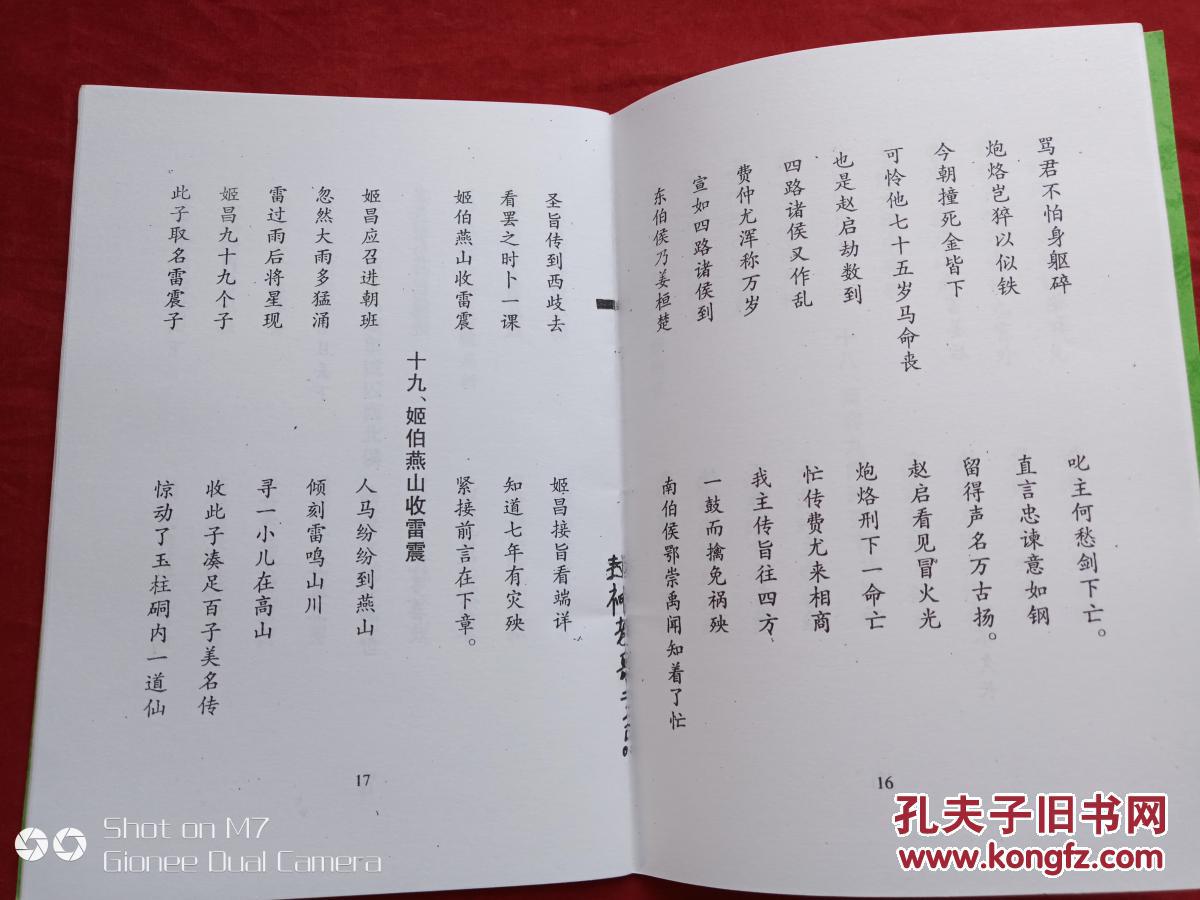 骂君不怕身躯碎
叱主何愁剑下亡。
炮烙岂猝以似铁
直言忠谏意如钢
今朝撞死金皆下
留得声名万古扬。
可怜他七十五岁马命丧
赵启看见冒火光
也是赵启劫数到
炮烙刑下一命亡
四路诸侯又作乱
忙传费尤来相商
费仲尤浑称万岁
我主传旨往四方
宣如四路诸侯到
一鼓而擒免祸殃
东伯侯乃姜桓楚
南伯侯鄂崇禹闻知着了忙
16
圣旨传到西歧去
姬昌接旨看端详
看罢之时卜一课
知道七年有灾殃
姬伯燕山收雷震
紧接前言在下章。
十九、姬伯燕山收雷震
姬昌应召进朝班
人马纷纷到燕山
忽然大雨多猛涌
倾刻雷鸣山川
雷过雨后将星现
寻一小儿在高山
姬昌九十九个子
收此子凑足百子美名传
此子取名雷震子
惊动了玉柱硐内一道仙
17
Shot on M7
Gionee Dual Camera
孔夫子旧书网
www.kongfz.com